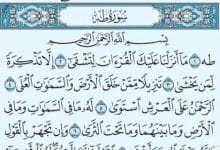 سُورَةُ طه
بِسْمِ اللَّهِ الرَّحْمَٰنِ الرَّحِيمِ
طه ١ مَا أَنزَلْنَا عَلَيْكَ الْقُرْءَانَ لِتَشْقَىٰ ٢ إِلَّا تَذْكِرَةً
لِّمَن يَخْشَىٰ ٣ تَنزِيلًا مِّمَّنْ خَلَقَ الْأَرْضَ وَالسَّمَٰوَٰتِ الْعُلَى ٤
الرَّحْمَٰنُ عَلَى الْعَرْشِ اسْتَوَىٰ ٥ لَهُ مَا فِي السَّمَٰوَٰتِ وَمَا فِي
الْأَرْضِ وَمَا بَيْنَهُمَا وَمَا تَحْتَ الثَّرَىٰ ٦ وَإِن تَجْهَرْ بِالْقَوْلِ